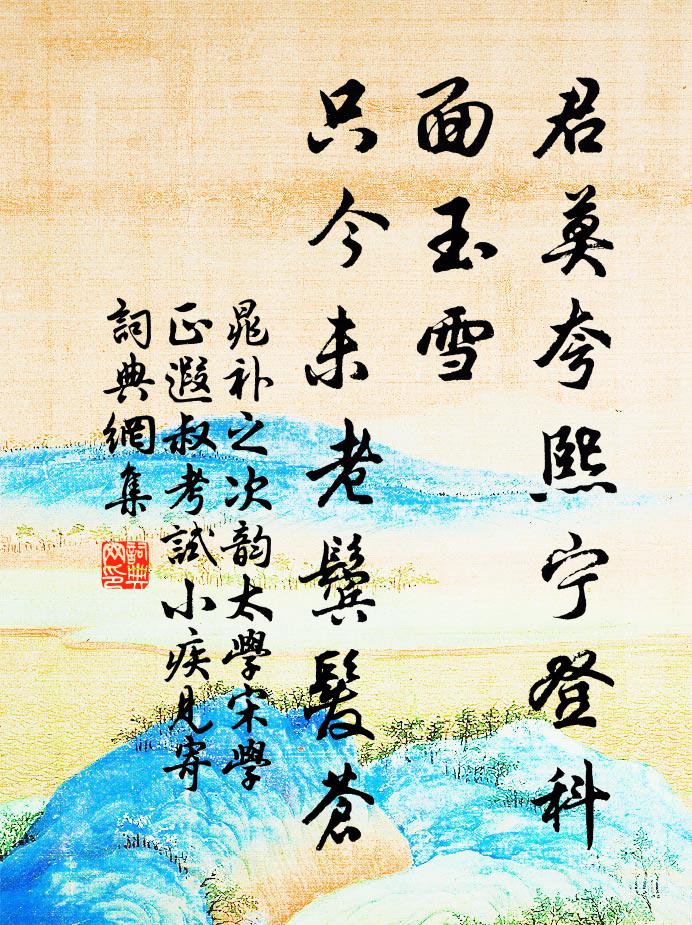 君莫夸熙宁登科
面玉雪
只今未老鬓髮苍
晁补之次韵太學宋學
正遐叔考試小疾見寄
詞典網集
詞典網印